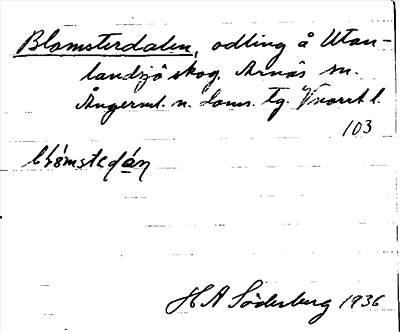 Blomsterdalen, odling å Utan-
landsjö skog. Arnäs sn.
Ångerml. n. doms. tg. Vnorrl l.
103
H A Söderberg 1936